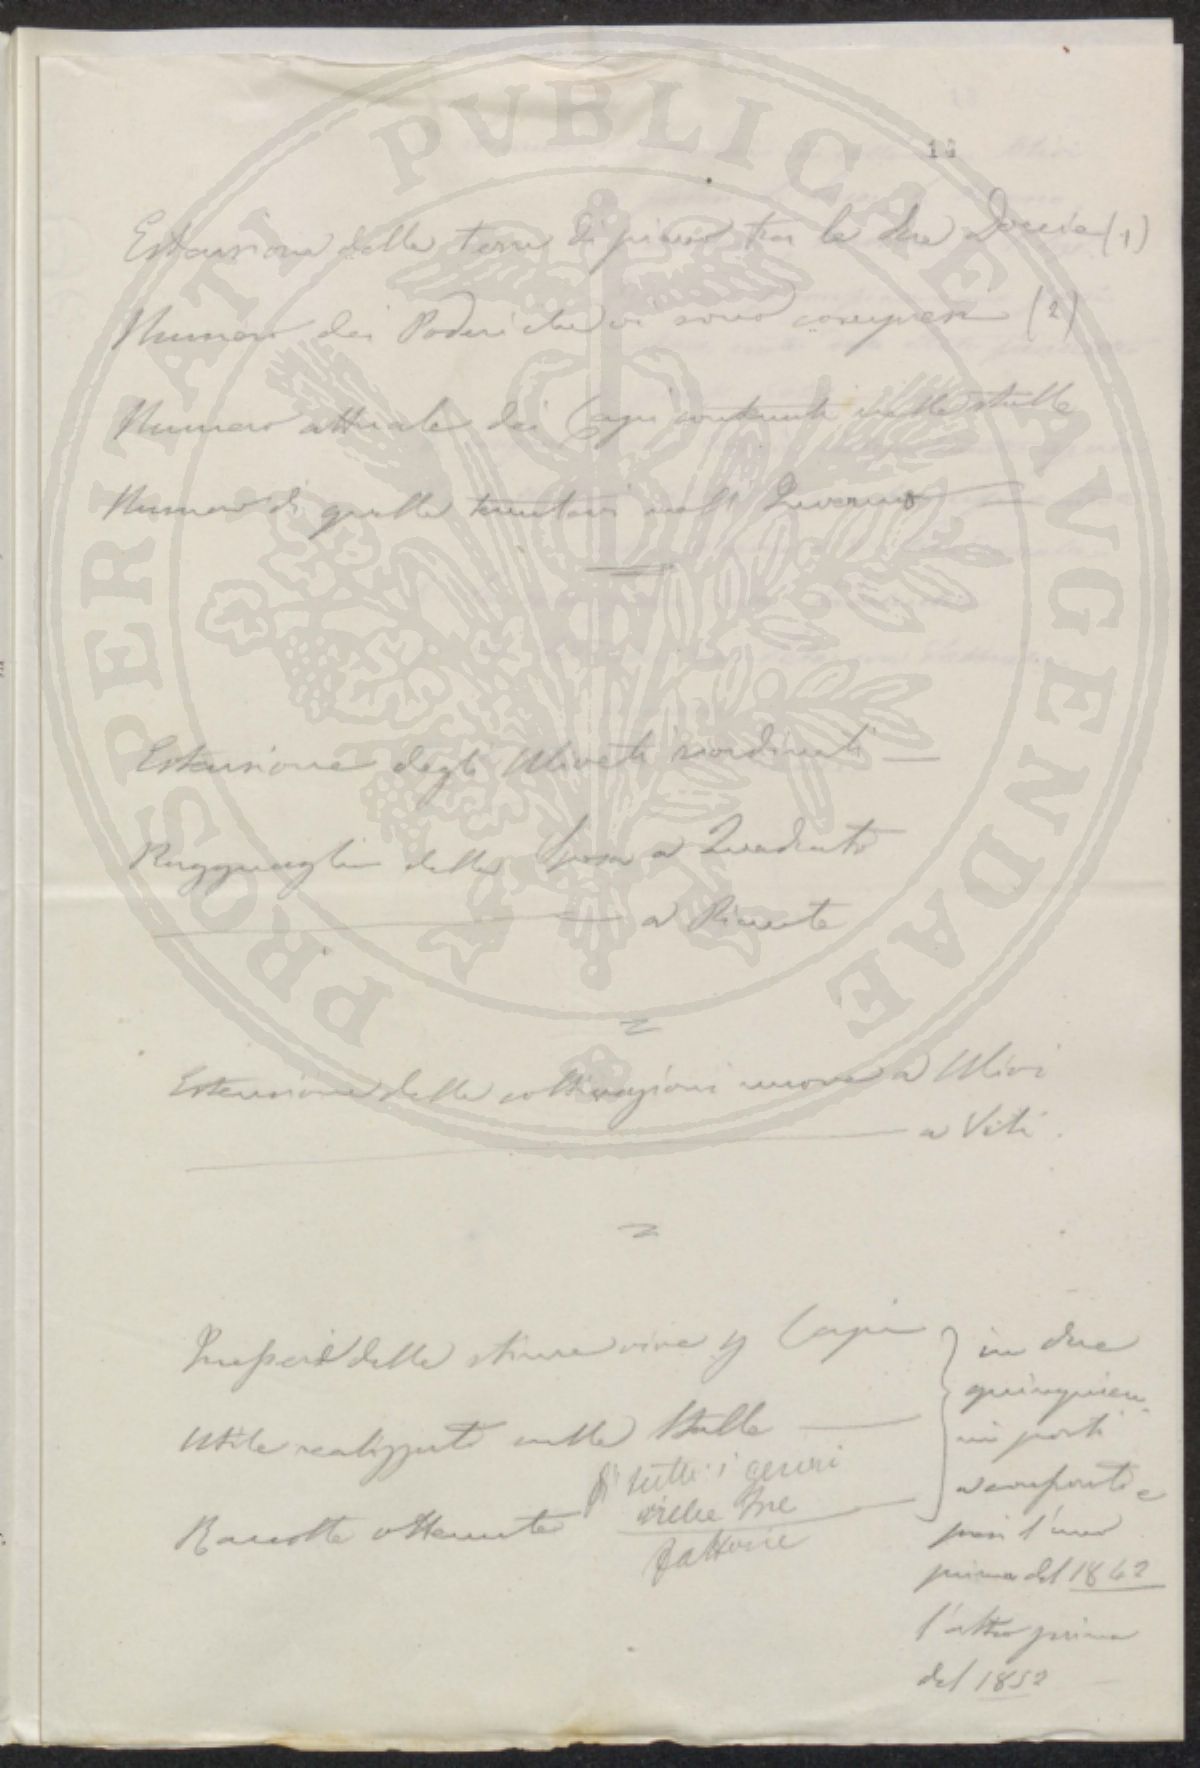 18
Estensione delle terre di piano tra le due Doccie (1)
Numero dei Poderi che vi sono compresi (2)
Numero attuale dei Capi contenuti nelle stalle
Numero di quelle tenutavi nell' Inverno
Estensione degli Uliveti riordinati
Ragguaglio della spesa a Quadrato
a Piante
Estensione delle coltivazioni nuove a Ulivi
a Viti
delle stime vive
Capi
Utile realizzato nelle Stalle
di tutti i generi
delle due
Raccolte ottenute
Fattorie
in due
quinquen
ni posti
a confronto e
presi l'uno
prima del 1862
l'altro prima
del 1852
PROSPERITATI PVBLICAE AVGENDAE